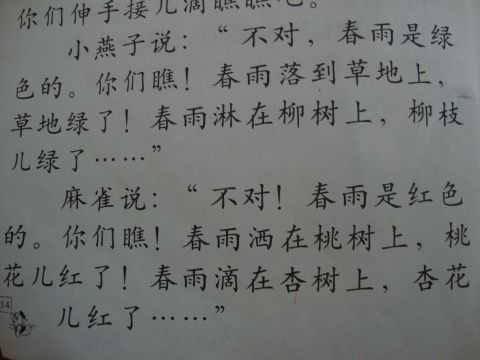 你们伸手接几滴瞧瞧吧。
小燕子说：“不对，春雨是绿
色的。你们瞧！春雨落到草地上，
草地绿了！春雨淋在柳树上，柳枝
儿绿了……”
麻雀说：“不对！春雨是红色
的。你们瞧！春雨洒在桃树上，桃
花儿红了！春雨滴在杏树上，杏花
儿红了……”
14